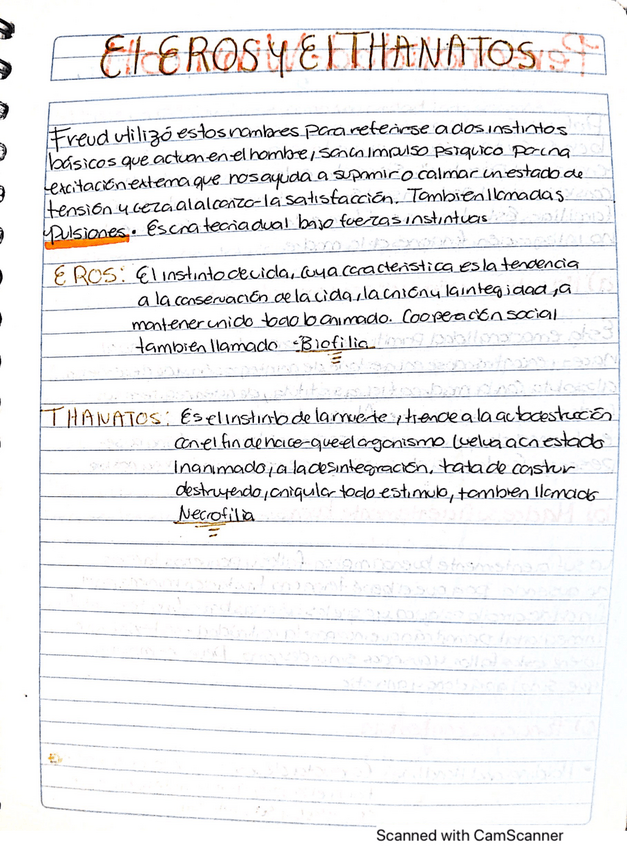 El EROS Y El THANATOS.
Freud utilizó estos nombres para referirse a dos instintos
básicos que actuan en el hombre, son un impulso psíquico por una
excitación externa que nos ayuda a suprimir o calmar un estado de
tensión y ceza al alcanzar la satisfacción. Tambien llamadas
Pulsiones. Es una teoria dual bajo fuerzas instintivas
EROS: El instinto de vida, cuya caracteristica es la tendencia
a la conservación de la vida, la unión y la integridad, a
mantener unido todo lo animado. Cooperación social
tambien llamado Biofilia
THANATOS: Es el instinto de la muerte, tiende a la autodestrucción
con el fin de hacer que el organismo vuelva a un estado
inanimado, a la desintegración, trata de
destruyendo, aniquilar todo estimulo, tambien llamado
Necrofilia
Scanned with CamScanner